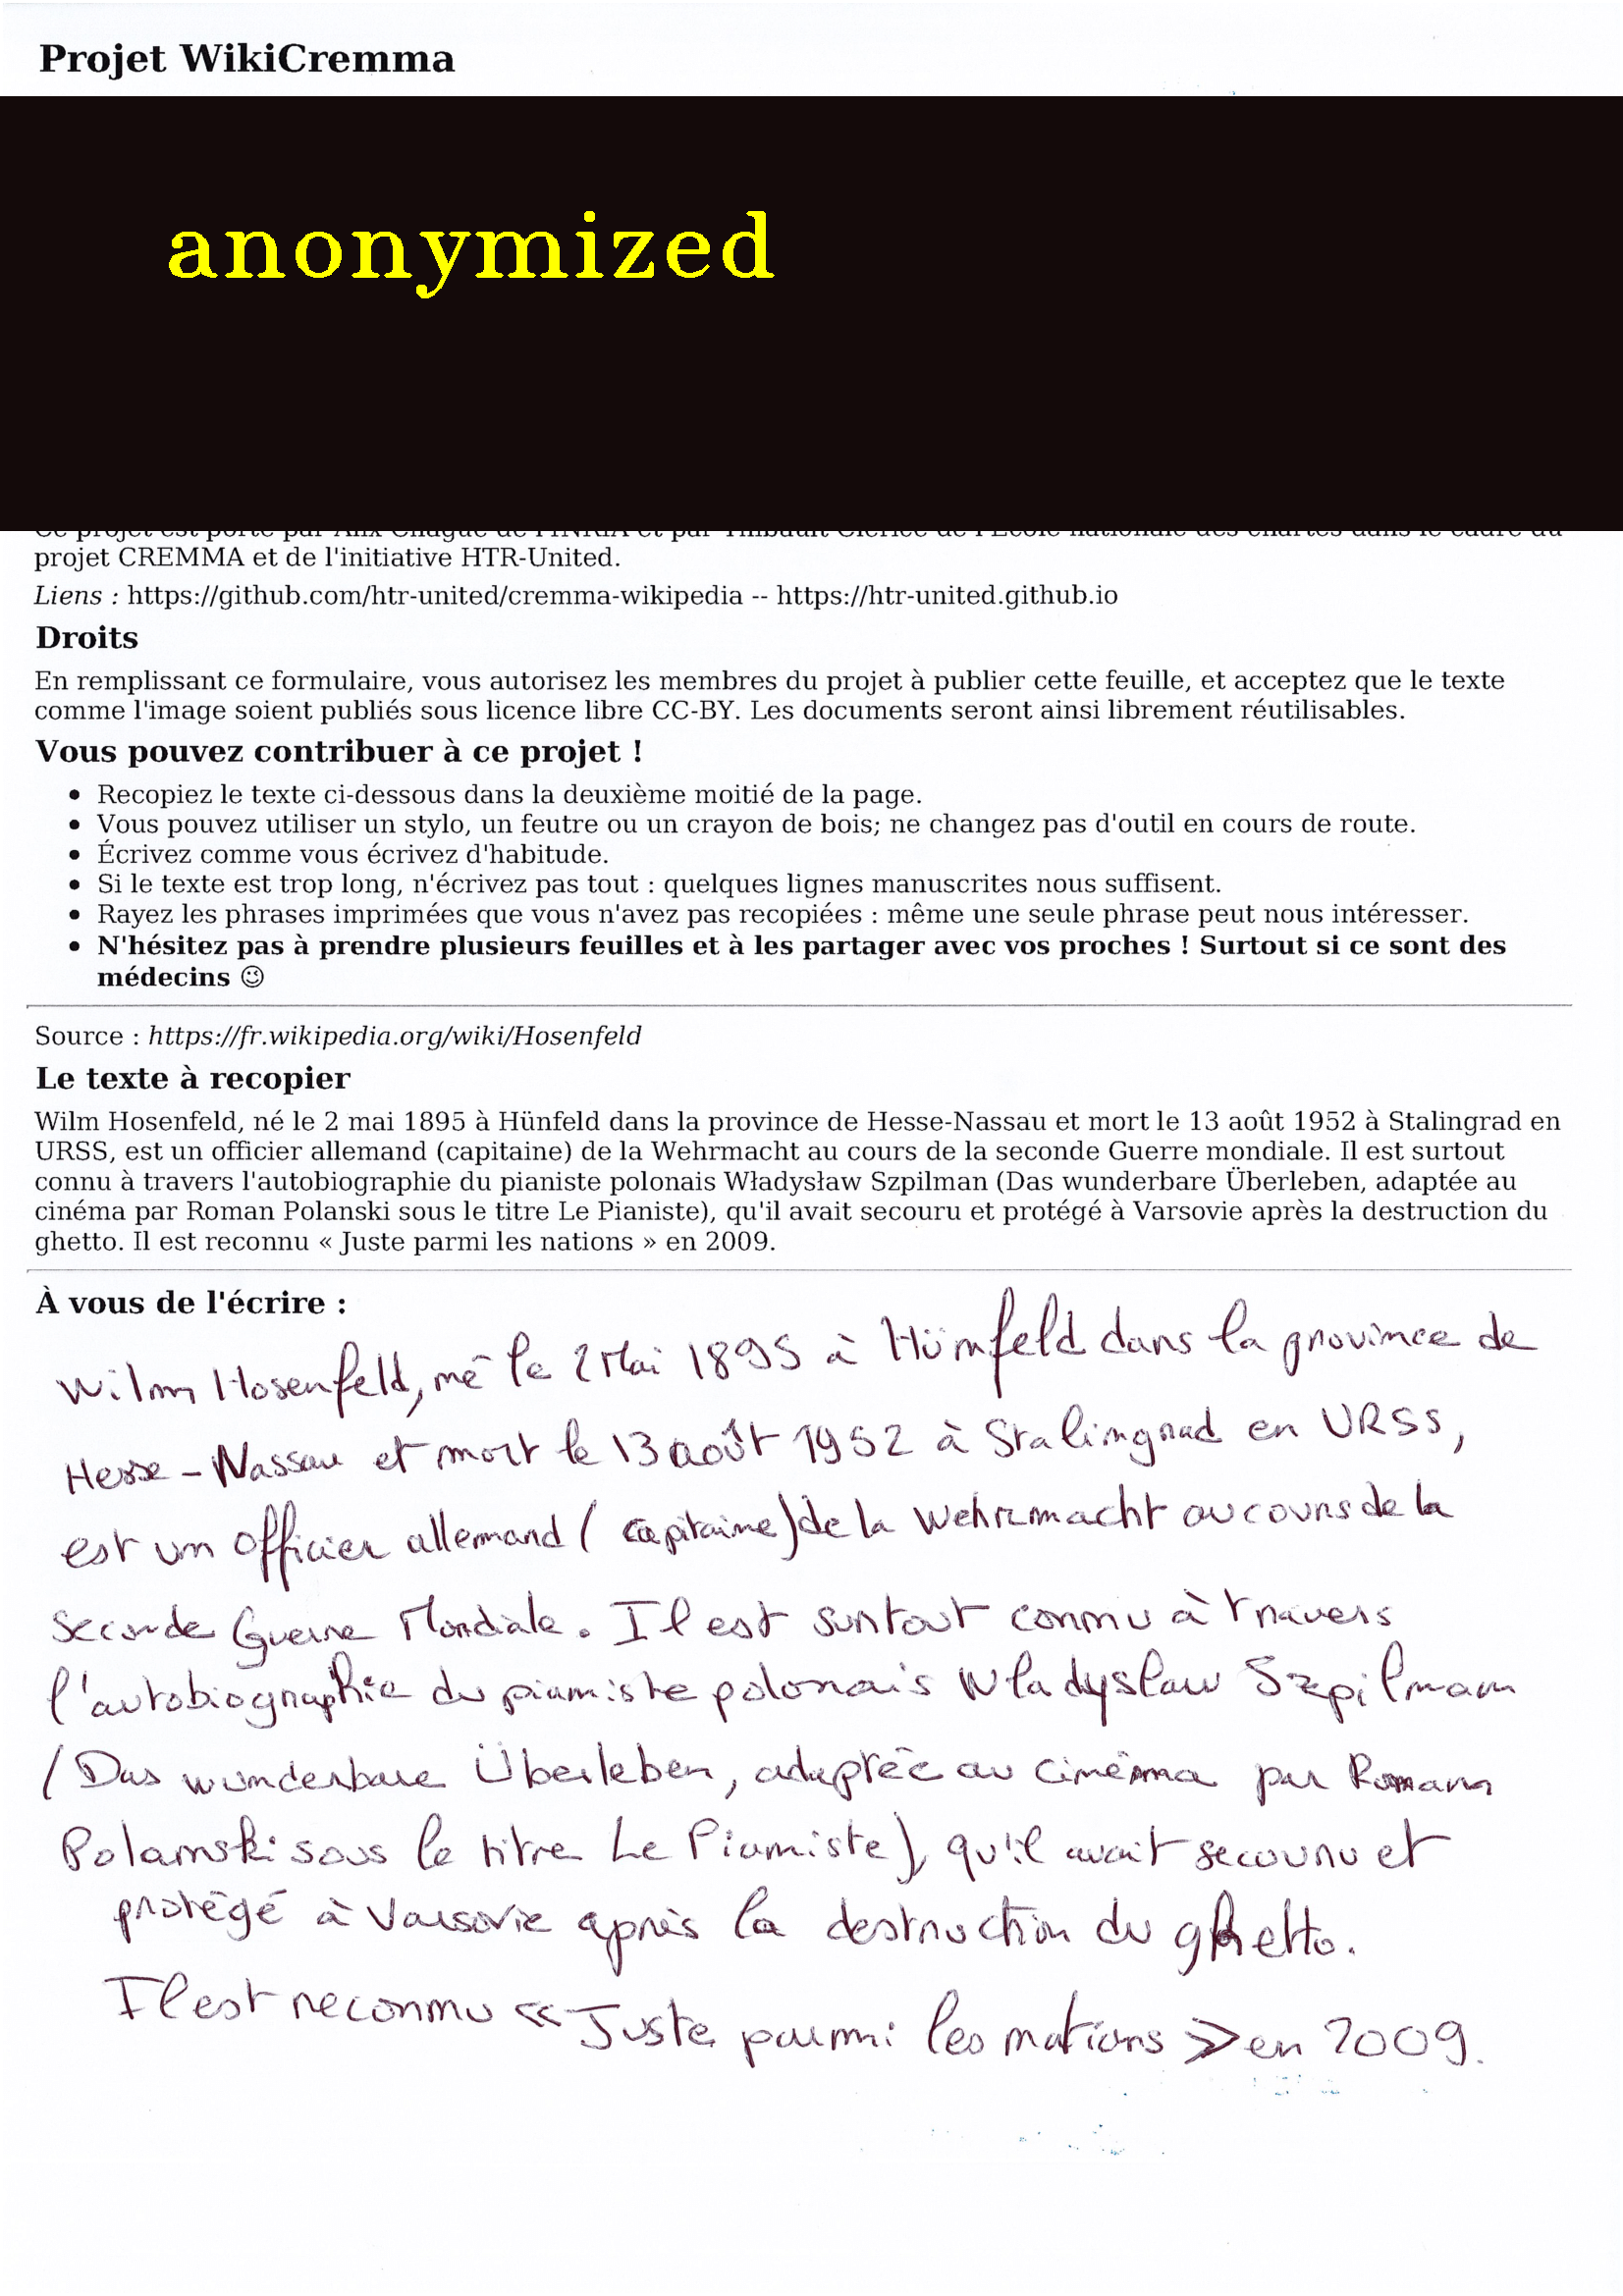 Projet WikiCremma
anonymized
Ce projet est porté par Alix Chagué de l'INRIA et par Thibault Clérice de l'École nationale des chartes dans le cadre du
projet CREMMA et de l'initiative HTR-United.
Liens : https://github.com/htr-united/cremma-wikipedia -- https://htr-united.github.io
Droits
En remplissant ce formulaire, vous autorisez les membres du projet à publier cette feuille, et acceptez que le texte
comme l'image soient publiés sous licence libre CC-BY. Les documents seront ainsi librement réutilisables.
Vous pouvez contribuer à ce projet !
• Recopiez le texte ci-dessous dans la deuxième moitié de la page.
• Vous pouvez utiliser un stylo, un feutre ou un crayon de bois; ne changez pas d'outil en cours de route.
• Écrivez comme vous écrivez d'habitude.
• Si le texte est trop long, n'écrivez pas tout : quelques lignes manuscrites nous suffisent.
• Rayez les phrases imprimées que vous n'avez pas recopiées : même une seule phrase peut nous intéresser.
• N'hésitez pas à prendre plusieurs feuilles et à les partager avec vos proches ! Surtout si ce sont des
médecins 😉
Source : https://fr.wikipedia.org/wiki/Hosenfeld
Le texte à recopier
Wilm Hosenfeld, né le 2 mai 1895 à Hünfeld dans la province de Hesse-Nassau et mort le 13 août 1952 à Stalingrad en
URSS, est un officier allemand (capitaine) de la Wehrmacht au cours de la seconde Guerre mondiale. Il est surtout
connu à travers l'autobiographie du pianiste polonais Władysław Szpilman (Das wunderbare Überleben, adaptée au
cinéma par Roman Polanski sous le titre Le Pianiste), qu'il avait secouru et protégé à Varsovie après la destruction du
ghetto. Il est reconnu « Juste parmi les nations » en 2009.
À vous de l'écrire :
Wilm Hosenfeld, né le 2 Mai 1895 à Hünfeld dans la province de
Hesse-Nassau et mort le 13 août 1952 à Stalingrad en URSS,
est un officier allemand (capitaine) de la Wehrmacht au cours de la
Seconde Guerre Mondiale. Il est surtout connu à travers
l'autobiographie du pianiste polonais Wladyslaw Szpilman
(Das wunderbare Überleben, adaptée au cinéma par Roman
Polanski sous le titre Le Pianiste), qu'il avait secouru et
protégé à Varsovie après la destruction du ghetto.
Il est reconnu « Juste parmi les nations » en 2009.